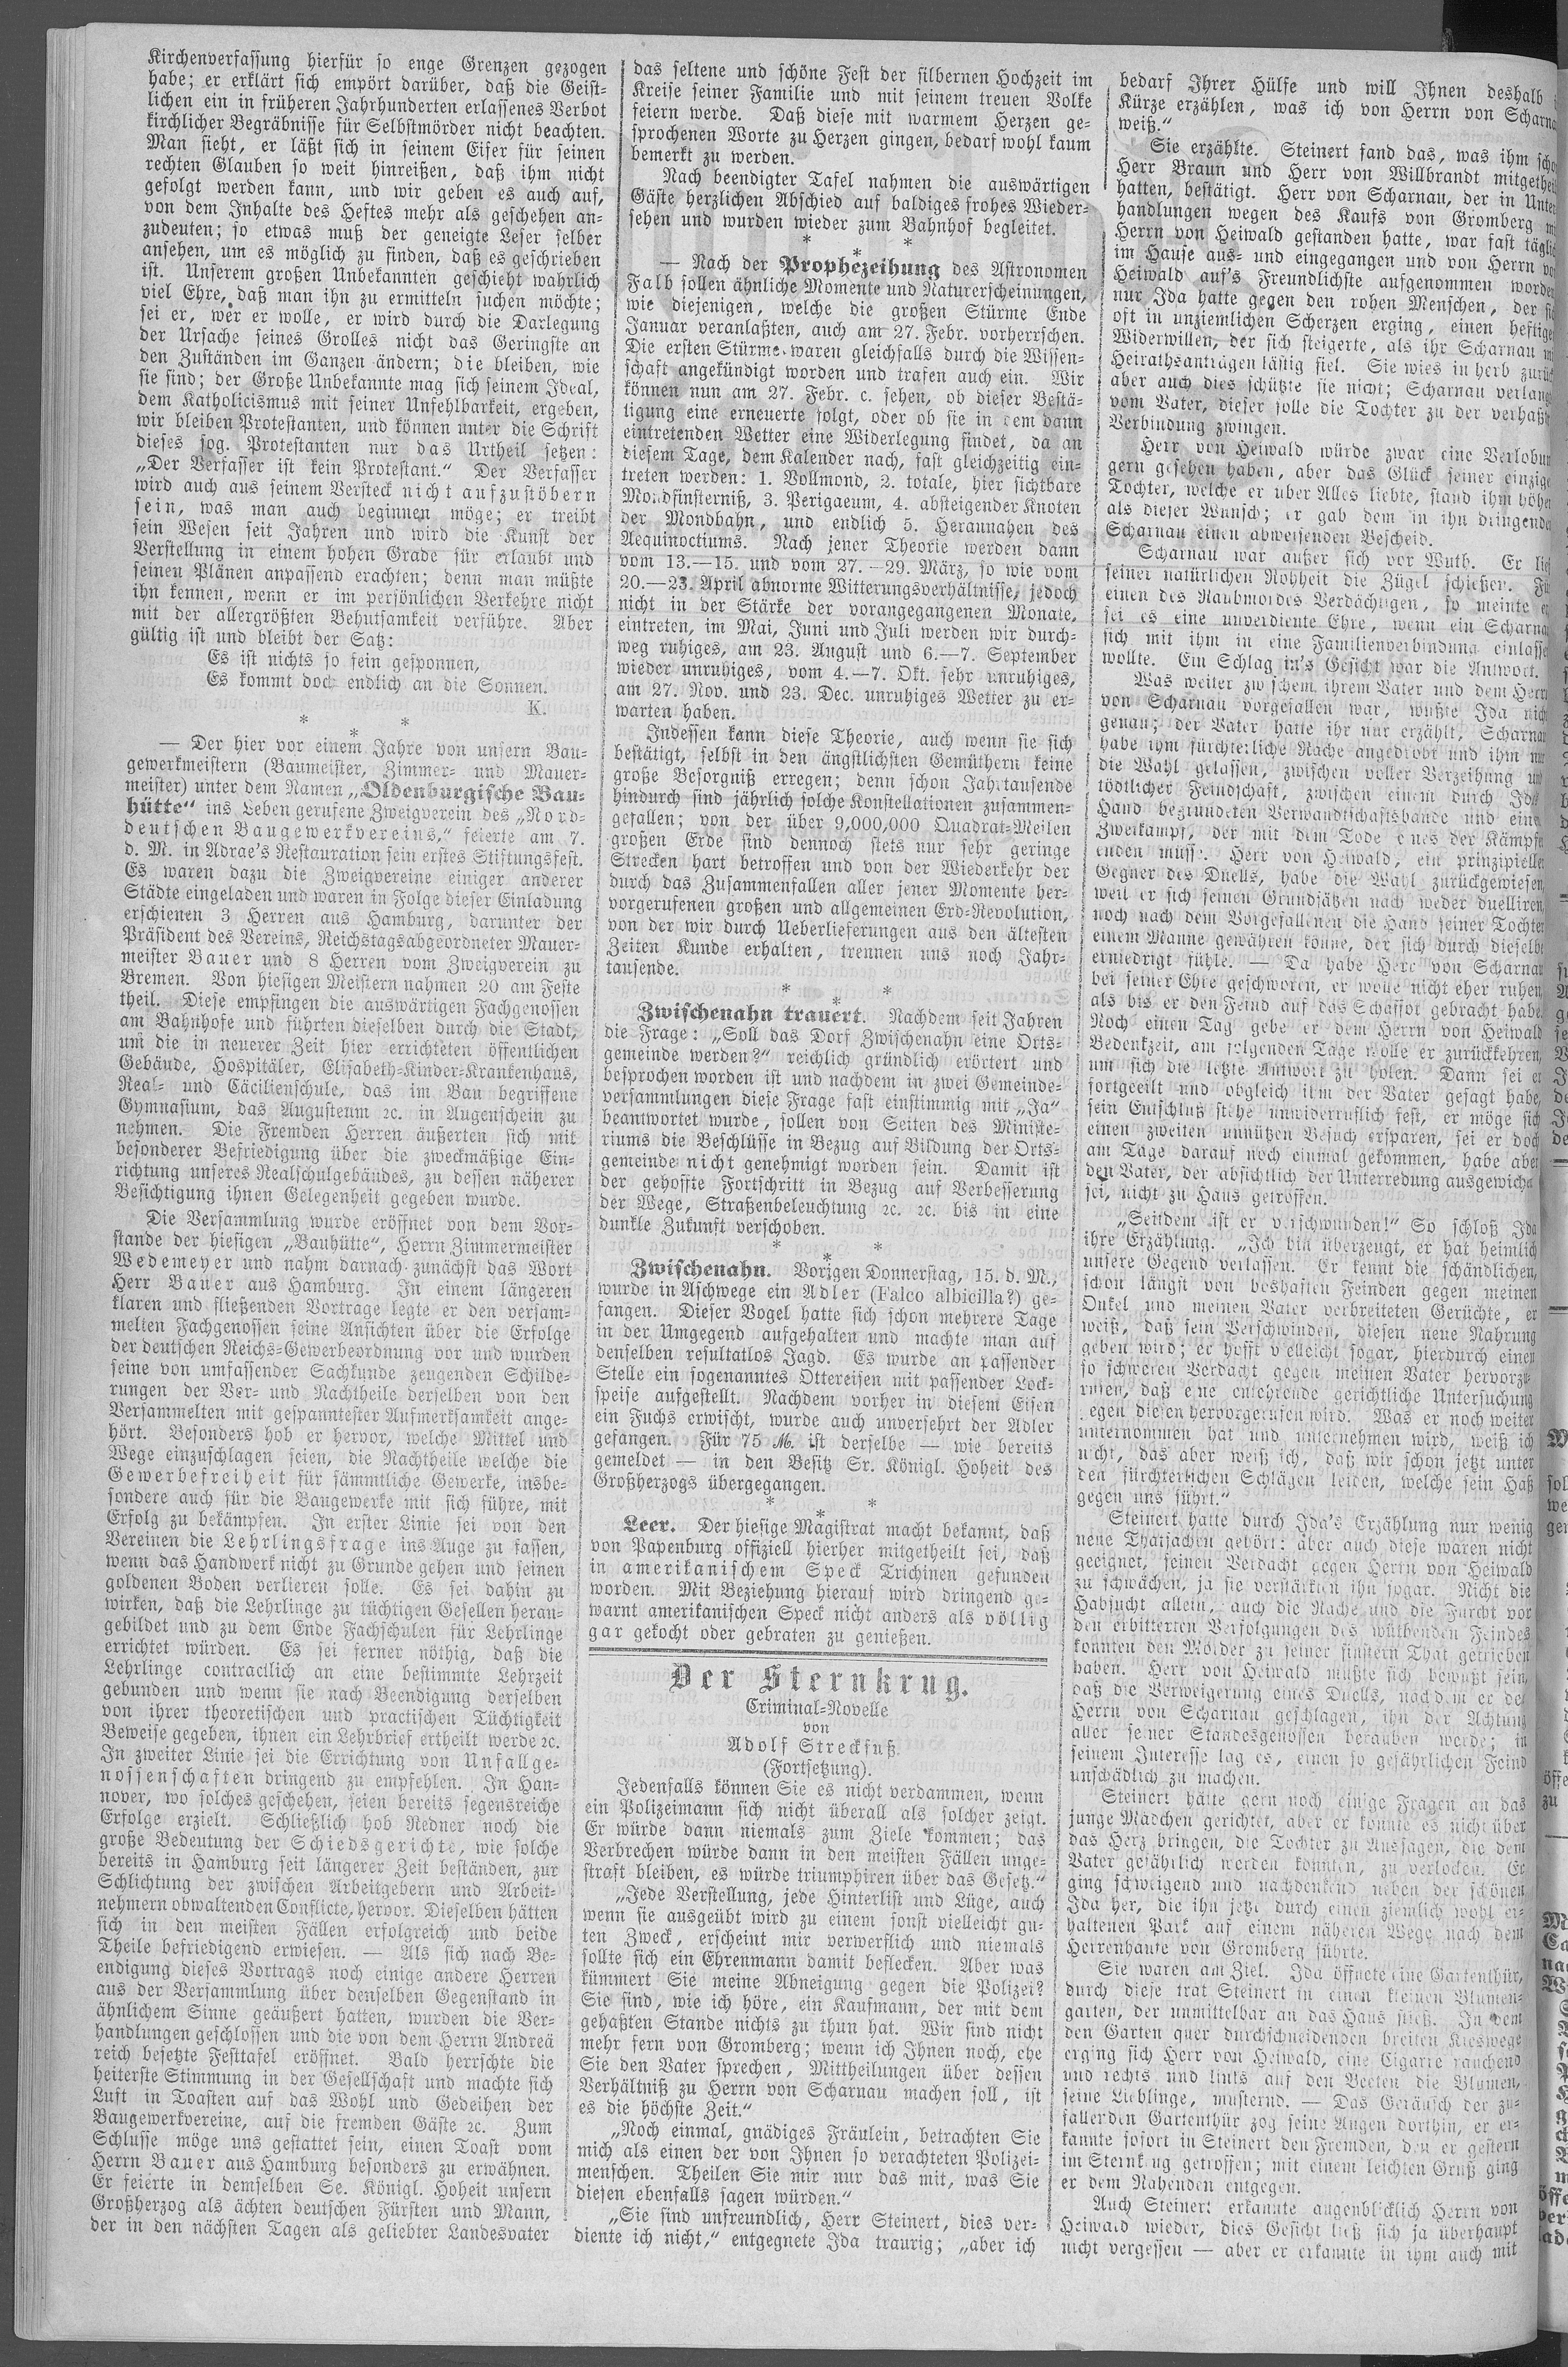 Kirchenverfassung hierfür so enge Grenzen gezogen
habe; er erklärt sich empört darüber, daß die Geist-
lichen ein in früheren Jahrhunderten erlassenes Verbot
kirchlicher Begräbnisse für Selbstmörder nicht beachten.
Man sieht, er läßt sich in seinem Eifer für seinen
rechten Glauben so weit hinreißen, daß ihm nicht
gefolgt werden kann, und wir geben es auch auf,
von dem Inhalte des Heftes mehr als geschehen an-
zudeuten; so etwas muß der geneigte Leser selber
ansehen, um es möglich zu finden, daß es geschrieben
ist. Unserem großen Unbekannten geschieht wahrlich
viel Ehre, daß man ihn zu ermitteln suchen möchte;
sei er, wer er wolle, er wird durch die Darlegung
der Ursache seines Grolles nicht das Geringste an
den Zuständen im Ganzen ändern; die bleiben, wie
sie sind; der Große Unbekannte mag sich seinem Ideal,
dem Katholicismus mit seiner Unfehlbarkeit, ergeben,
wir bleiben Protestanten, und können unter die Schrift
dieses sog. Protestanten nur das Urtheil setzen:
„Der Verfasser ist kein Protestant.“ Der Verfasser
wird auch aus seinem Versteck nicht aufzustöbern
sein, was man auch beginnen möge; er treibt
sein Wesen seit Jahren und wird die Kunst der
Verstellung in einem hohen Grade für erlaubt und
seinen Plänen anpassend erachten; denn man müßte
ihn kennen, wenn er im persönlichen Verkehre nicht
mit der allergrößten Behutsamkeit verführe. Aber
gültig ist und bleibt der Satz:
Es ist nichts so fein gesponnen,
Es kommt doch endlich an die Sonnen.
K.
* * *
— Der hier vor einem Jahre von unsern Bau-
gewerkmeistern (Baumeister, Zimmer- und Mauer-
meister) unter dem Namen „Oldenburgische Bau-
hütte“ ins Leben gerufene Zweigverein des „Nord-
deutschen Baugewerkvereins,“ feierte am 7.
d. M. in Adrae's Restauration sein erstes Stiftungsfest.
Es waren dazu die Zweigvereine einiger anderer
Städte eingeladen und waren in Folge dieser Einladung
erschienen 3 Herren aus Hamburg, darunter der
Präsident des Vereins, Reichstagsabgeordneter Mauer-
meister Bauer und 8 Herren vom Zweigverein zu
Bremen. Von hiesigen Meistern nahmen 20 am Feste
theil. Diese empfingen die auswärtigen Fachgenossen
am Bahnhofe und führten dieselben durch die Stadt,
um die in neuerer Zeit hier errichteten öffentlichen
Gebäude, Hospitäler, Elisabeth-Kinder-Krankenhaus,
Real- und Cäcilienschule, das im Bau begriffene
Gymnasium, das Augusteum ꝛc. in Augenschein zu
nehmen. Die Fremden Herren äußerten sich mit
besonderer Befriedigung über die zweckmäßige Ein-
richtung unseres Realschulgebäudes, zu dessen näherer
Besichtigung ihnen Gelegenheit gegeben wurde.
Die Versammlung wurde eröffnet von dem Vor-
stande der hiesigen „Bauhütte“, Herrn Zimmermeister
Wedemeyer und nahm darnach zunächst das Wort
Herr Bauer aus Hamburg. In einem längeren
klaren und fließenden Vortrage legte er den versam-
melten Fachgenossen seine Ansichten über die Erfolge
der deutschen Reichs-Gewerbeordnung vor und wurden
seine von umfassender Sachkunde zeugenden Schilde-
rungen der Vor- und Nachtheile derselben von den
Versammelten mit gespanntester Aufmerksamkeit ange-
hört. Besonders hob er hervor, welche Mittel und
Wege einzuschlagen seien, die Nachtheile welche die
Gewerbefreiheit für sämmtliche Gewerke, insbe-
sondere auch für die Baugewerke mit sich führe, mit
Erfolg zu bekämpfen. In erster Linie sei von den
Vereinen die Lehrlingsfrage ins Auge zu fassen,
wenn das Handwerk nicht zu Grunde gehen und seinen
goldenen Boden verlieren solle. Es sei dahin zu
wirken, daß die Lehrlinge zu tüchtigen Gesellen heran-
gebildet und zu dem Ende Fachschulen für Lehrlinge
errichtet würden. Es sei ferner nöthig, daß die
Lehrlinge contractlich an eine bestimmte Lehrzeit
gebunden und wenn sie nach Beendigung derselben
von ihrer theoretischen und practischen Tüchtigkeit
Beweise gegeben, ihnen ein Lehrbrief ertheilt werde ꝛc.
In zweiter Linie sei die Errichtung von Unfallge-
nossenschaften dringend zu empfehlen. In Han-
nover, wo solches geschehen, seien bereits segensreiche
Erfolge erzielt. Schließlich hob Redner noch die
große Bedeutung der Schiedsgerichte, wie solche
bereits in Hamburg seit längerer Zeit beständen, zur
Schlichtung der zwischen Arbeitgebern und Arbeit-
nehmern obwaltenden Conflicte, hervor. Dieselben hätten
sich in den meisten Fällen erfolgreich und beide
Theile befriedigend erwiesen. — Als sich nach Be-
endigung dieses Vortrags noch einige andere Herren
aus der Versammlung über denselben Gegenstand in
ähnlichem Sinne geäußert hatten, wurden die Ver-
handlungen geschlossen und die von dem Herrn Andreä
reich besetzte Festtafel eröffnet. Bald herrschte die
heiterste Stimmung in der Gesellschaft und machte sich
Luft in Toasten auf das Wohl und Gedeihen der
Baugewerkvereine, auf die fremden Gäste ꝛc. Zum
Schlusse möge uns gestattet sein, einen Toast vom
Herrn Bauer aus Hamburg besonders zu erwähnen.
Er feierte in demselben Se. Königl. Hoheit unsern
Großherzog als ächten deutschen Fürsten und Mann,
der in den nächsten Tagen als geliebter Landesvater
das seltene und schöne Fest der silbernen Hochzeit im
Kreise seiner Familie und mit seinem treuen Volke
feiern werde. Daß diese mit warmem Herzen ge-
sprochenen Worte zu Herzen gingen, bedarf wohl kaum
bemerkt zu werden.
Nach beendigter Tafel nahmen die auswärtigen
Gäste herzlichen Abschied auf baldiges frohes Wieder-
sehen und wurden wieder zum Bahnhof begleitet.
* * *
— Nach der Prophezeihung des Astronomen
Falb sollen ähnliche Momente und Naturerscheinungen,
wie diejenigen, welche die großen Stürme Ende
Januar veranlaßten, auch am 27. Febr. vorherrschen.
Die ersten Stürme waren gleichfalls durch die Wissen-
schaft angekündigt worden und trafen auch ein. Wir
können nun am 27. Febr. c. sehen, ob dieser Bestä-
tigung eine erneuerte folgt, oder ob sie in dem dann
eintretenden Wetter eine Widerlegung findet, da an
diesem Tage, dem Kalender nach, fast gleichzeitig ein-
treten werden: 1. Vollmond, 2. totale, hier sichtbare
Mondfinsterniß, 3. Perigaeum, 4. absteigender Knoten
der Mondbahn, und endlich 5. Herannahen des
Aequinoctiums. Nach jener Theorie werden dann
vom 13.—15. und vom 27.—29. März, so wie vom
20.—23. April abnorme Witterungsverhältnisse, jedoch
nicht in der Stärke der vorangegangenen Monate,
eintreten, im Mai, Juni und Juli werden wir durch-
weg ruhiges, am 23. August und 6.—7. September
wieder unruhiges, vom 4.—7. Okt. sehr unruhiges,
am 27. Nov. und 23. Dec. unruhiges Wetter zu er-
warten haben.
Indessen kann diese Theorie, auch wenn sie sich
bestätigt, selbst in den ängstlichsten Gemüthern keine
große Besorgniß erregen; denn schon Jahrtausende
hindurch sind jährlich solche Konstellationen zusammen-
gefallen; von der über 9,000,000 Quadrat-Meilen
großen Erde sind dennoch stets nur sehr geringe
Strecken hart betroffen und von der Wiederkehr der
durch das Zusammenfallen aller jener Momente her-
vorgerufenen großen und allgemeinen Erd-Revolution,
von der wir durch Ueberlieferungen aus den ältesten
Zeiten Kunde erhalten, trennen uns noch Jahr-
tausende.
* * *
Zwischenahn trauert. Nachdem seit Jahren
die Frage: „Soll das Dorf Zwischenahn eine Orts-
gemeinde werden?“ reichlich gründlich erörtert und
besprochen worden ist und nachdem in zwei Gemeinde-
versammlungen diese Frage fast einstimmig mit „Ja“
beantwortet wurde, sollen von Seiten des Ministe-
riums die Beschlüsse in Bezug auf Bildung der Orts-
gemeinde nicht genehmigt worden sein. Damit ist
der gehoffte Fortschritt in Bezug auf Verbesserung
der Wege, Straßenbeleuchtung ꝛc. ꝛc. bis in eine
dunkle Zukunft verschoben.
* * *
Zwischenahn. Vorigen Donnerstag, 15. d. M.,
wurde in Aschwege ein Adler (Falco albicilla?) ge-
fangen. Dieser Vogel hatte sich schon mehrere Tage
in der Umgegend aufgehalten und machte man auf
denselben resultatlos Jagd. Es wurde an passender
Stelle ein sogenanntes Ottereisen mit passender Lock-
speise aufgestellt. Nachdem vorher in diesem Eisen
ein Fuchs erwischt, wurde auch unversehrt der Adler
gefangen. Für 75 M. ist derselbe — wie bereits
gemeldet — in den Besitz Sr. Königl. Hoheit des
Großherzogs übergegangen.
* * *
Leer. Der hiesige Magistrat macht bekannt, daß
von Papenburg offiziell hierher mitgetheilt sei, daß
in amerikanischem Speck Trichinen gefunden
worden. Mit Beziehung hierauf wird dringend ge-
warnt amerikanischen Speck nicht anders als völlig
gar gekocht oder gebraten zu genießen.
Der Sternkrug.
Criminal-Novelle
von
Adolf Streckfuß.
(Fortsetzung).
Jedenfalls können Sie es nicht verdammen, wenn
ein Polizeimann sich nicht überall als solcher zeigt.
Er würde dann niemals zum Ziele kommen; das
Verbrechen würde dann in den meisten Fällen unge-
straft bleiben, es würde triumphiren über das Gesetz.“
„Jede Verstellung, jede Hinterlist und Lüge, auch
wenn sie ausgeübt wird zu einem sonst vielleicht gu-
ten Zweck, erscheint mir verwerflich und niemals
sollte sich ein Ehrenmann damit beflecken. Aber was
kümmert Sie meine Abneigung gegen die Polizei?
Sie sind, wie ich höre, ein Kaufmann, der mit dem
gehaßten Stande nichts zu thun hat. Wir sind nicht
mehr fern von Gromberg; wenn ich Ihnen noch, ehe
Sie den Vater sprechen, Mittheilungen über dessen
Verhältniß zu Herrn von Scharnau machen soll, ist
es die höchste Zeit.“
„Noch einmal, gnädiges Fräulein, betrachten Sie
mich als einen der von Ihnen so verachteten Polizei-
menschen. Theilen Sie mir nur das mit, was Sie
diesen ebenfalls sagen würden.“
„Sie sind unfreundlich, Herr Steinert, dies ver-
diente ich nicht,“ entgegnete Ida traurig; „aber ich
bedarf Ihrer Hülfe und will Ihnen deshalb
Kürze erzählen, was ich von Herrn von Scharna
weiß.“
Sie erzählte. Steinert fand das, was ihm scho
Herr Braun und Herr von Willbrandt mitgethei
hatten, bestätigt. Herr von Scharnau, der in Unter
handlungen wegen des Kaufs von Gromberg mi
Herrn von Heiwald gestanden hatte, war fast täglic
im Hause aus- und eingegangen und von Herrn vo
Heiwald auf's Freundlichste aufgenommen worden
nur Ida hatte gegen den rohen Menschen, der sic
oft in unziemlichen Scherzen erging, einen heftige
Widerwillen, der sich steigerte, als ihr Scharnau mi
Heirathsanträgen lästig fiel. Sie wies ihn herb zurüc
aber auch dies schützte sie nicht; Scharnau verlang
vom Vater, dieser solle die Tochter zu der verhaßte
Verbindung zwingen.
Herr von Heiwald würde zwar eine Verlobun
gern gesehen haben, aber das Glück seiner einzige
Tochter, welche er über Alles liebte, stand ihm höher
als dieser Wunsch; er gab dem in ihn dringende
Scharnau einen abweisenden Bescheid.
Scharnau war außer sich vor Wuth. Er lie
seiner natürlichen Rohheit die Zügel schießen. Fü
einen des Raubmordes Verdächtigen, so meinte er
sei es eine unverdiente Ehre, wenn ein Scharna
sich mit ihm in eine Familienverbindung einlasse
wollte. Ein Schlag in's Gesicht war die Antwort.
Was weiter zwischem ihrem Vater und dem Herr
von Scharnau vorgefallen war, wußte Ida nich
genau; der Vater hatte ihr nur erzählt, Scharnau
habe ihm fürchterliche Rache angedroht und ihm nur
die Wahl gelassen, zwischen voller Verzeihung und
tödtlicher Feindschaft, zwischen einem durch Ida
Hand begründeten Verwandtschaftsbande und eine
Zweikampf, der mit dem Tode eines der Kämpfe
enden müsse. Herr von Heiwald, ein prinzipieller
Gegner des Duells, habe die Wahl zurückgewiesen,
weil er sich seinen Grundsätzen nach weder duelliren,
noch nach dem Vorgefallenen die Hand seiner Tochter
einem Manne gewähren könne, der sich durch dieselbe
erniedrigt fühle. — Da habe Herr von Scharnau
bei seiner Ehre geschworen, er wolle nicht eher ruhen,
als bis er den Feind auf das Schaffot gebracht habe.
Noch einen Tag gebe er dem Herrn von Heiwald
Bedenkzeit, am folgenden Tage wolle er zurückkehren,
um sich die letzte Antwort zu holen. Dann sei er
fortgeeilt und obgleich ihm der Vater gesagt habe,
sein Entschluß stehe unwiderruflich fest, er möge sich
einen zweiten unnützen Besuch ersparen, sei er doch
am Tage darauf noch einmal gekommen, habe aber
den Vater, der absichtlich der Unterredung ausgewichen
sei, nicht zu Haus getroffen.
„Seitdem ist er verschwunden!“ So schloß Ida
ihre Erzählung. „Ich bin überzeugt, er hat heimlich
unsere Gegend verlassen. Er kennt die schändlichen,
schon längst von boshaften Feinden gegen meinen
Onkel und meinen Vater verbreiteten Gerüchte, er
weiß, daß sein Verschwinden, diesen neue Nahrung
geben wird; er hofft vielleicht sogar, hierdurch einen
so schweren Verdacht gegen meinen Vater hervorzu-
rufen, daß eine entehrende gerichtliche Untersuchung
gegen diesen hervorgerufen wird. Was er noch weiter
unternommen hat und unternehmen wird, weiß ich
nicht, das aber weiß ich, daß wir schon jetzt unter
den fürchterlichen Schlägen leiden, welche sein Haß
gegen uns führt.“
Steinert hatte durch Ida's Erzählung nur wenig
neue Thatsachen gehört: aber auch diese waren nicht
geeignet, seinen Verdacht gegen Herrn von Heiwald
zu schwächen, ja sie verstärkten ihn sogar. Nicht die
Habsucht allein, auch die Rache und die Furcht vor
den erbitterten Verfolgungen des wüthenden Feindes
konnten den Mörder zu seiner finstern That getrieben
haben. Herr von Heiwald mußte sich bewußt sein,
daß die Verweigerung eines Duells, nachdem er den
Herrn von Scharnau geschlagen, ihn der Achtung
aller seiner Standesgenossen berauben werde; in
seinem Interesse lag es, einen so gefährlichen Feind
unschädlich zu machen.
Steinert hätte gern noch einige Fragen an das
junge Mädchen gerichtet, aber er konnte es nicht über
das Herz bringen, die Tochter zu Aussagen, die dem
Vater gefährlich werden konnten, zu verlocken. Er
ging schweigend und nachdenkend neben der schönen
Ida her, die ihn jetzt durch einen ziemlich wohl er-
haltenen Park auf einem näheren Wege nach dem
Herrenhause von Gromberg führte.
Sie waren am Ziel. Ida öffnete eine Gartenthür,
durch diese trat Steinert in einen kleinen Blumen-
garten, der unmittelbar an das Haus stieß. In dem
den Garten quer durchschneidenden breiten Kieswege
erging sich Herr von Heiwald, eine Cigarre rauchend
und rechts und links auf den Beeten die Blumen,
seine Lieblinge, musternd. — Das Geräusch der zu-
fallenden Gartenthür zog seine Augen dorthin, er er-
kannte sofort in Steinert den Fremden, den er gestern
im Sternkrug getroffen; mit einem leichten Gruß ging
er dem Nahenden entgegen.
Auch Steinert erkannte augenblicklich Herrn von
Heiwald wieder, dies Gesicht ließ sich ja überhaupt
nicht vergessen — aber er erkannte in ihm auch mit